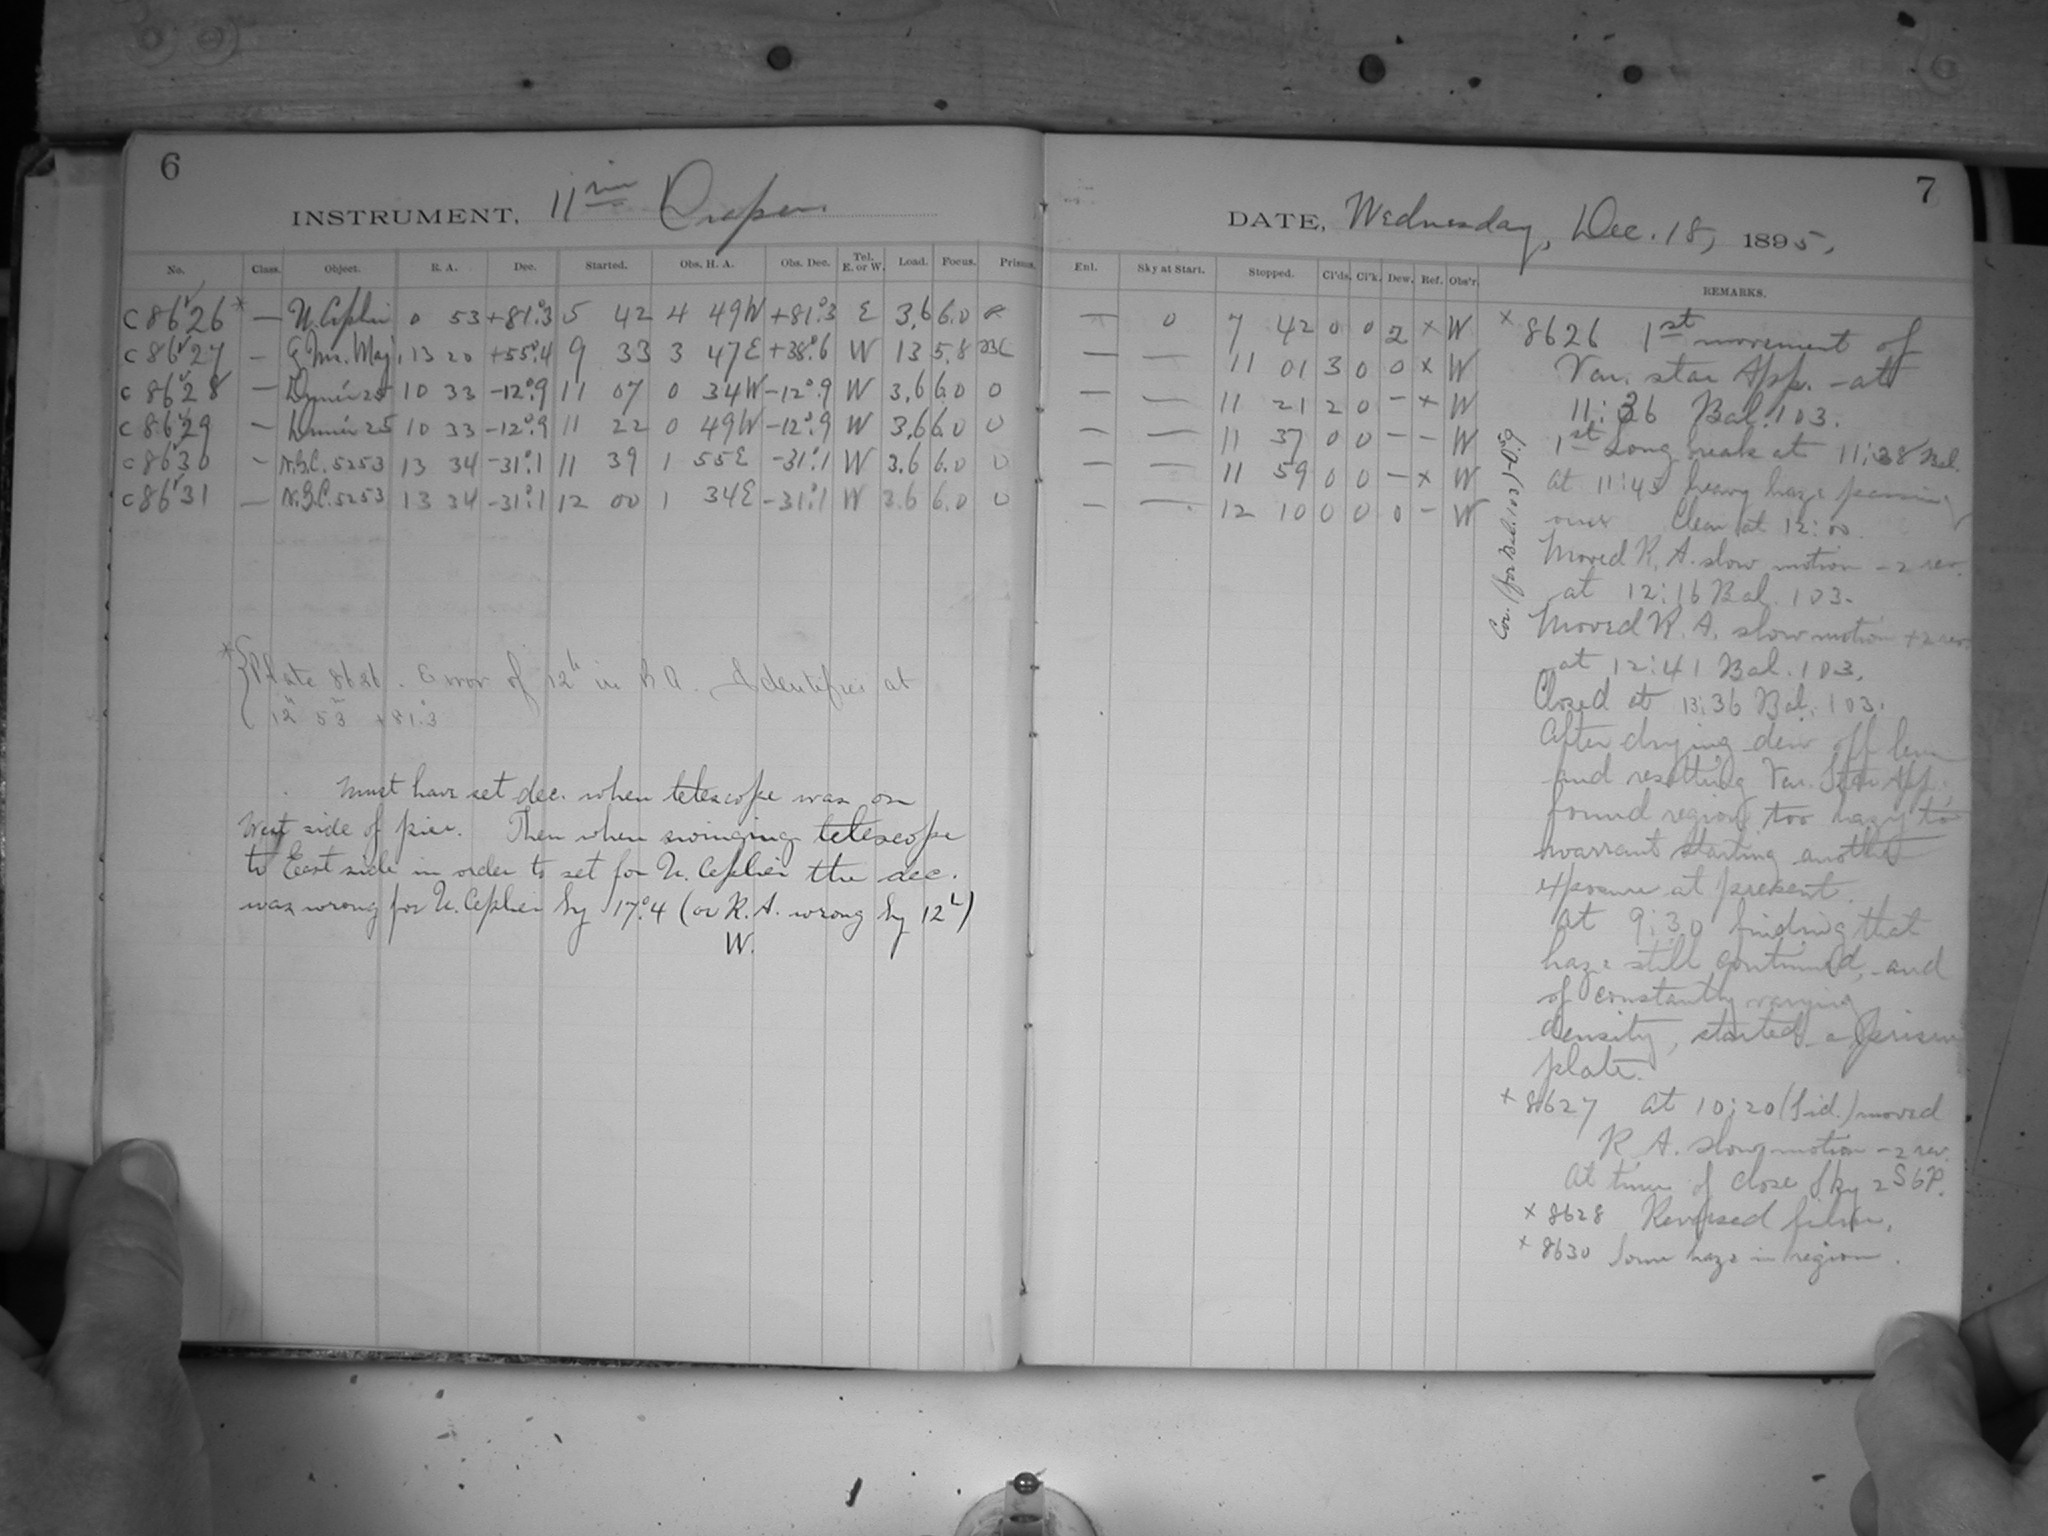 6
INSTRUMENT, 11 in Draper
No. Class. Object. R. A. Dec. Started. Obs. H. A. Obs. Dec. Tel. E. or W. Load. Focus. Prisms.
C 8626 * — U. Cephei 0 53 +81°.3 5 42 4 49W +81°.3 E 3.6 6.0
C 8627 — Maj. 13 20 +55°.4 9 33 3 47E +38°.6 W 13 5.8
C 8628 — 10 33 -12°.9 11 07 0 34W -12°.9 W 3.6 6.0 0
C 8629 — 10 33 -12°.9 11 22 0 49W -12°.9 W 3.6 6.0 0
C 8630 — N.G.C. 5253 13 34 -31°.1 11 39 1 55E -31°.1 W 3.6 6.0 0
C 8631 — N.G.C. 5253 13 34 -31°.1 12 00 1 34E -31°.1 W 3.6 6.0 0
* Plate 8626. Error of 12h in R A. Identifies at
12h 53m +81°.3
Must have set dec. when telescope was on
West side of pier. Then when swinging telescope
to East side in order to set for U. Cephei the dec.
was wrong for U. Cephei by 17°.4 (or R. A. wrong by 12h)
W.
7
DATE, Wednesday, Dec. 18, 1895.
Enl. Sky at Start. Stopped. Cl'ds. Cl'k. Dew. Ref. Obs'r. REMARKS.
— 0 7 42 0 0 2 x W
— — 11 01 3 0 0 x W
— — 11 21 2 0 - x W
— — 11 37 0 0 - - W
— — 11 59 0 0 - x W
— — 12 10 0 0 0 - W
Cor. (for Bal. 103) -0s.9
x 8626 1st movement of
Var. star App. - at
11:36 Bal. 103.
1st Long break at 11:38 Bal.
At 11:45 heavy haze passing
over Clear at 12:00.
Moved R. A. slow motion -2 rev.
at 12:16 Bal. 103.
Moved R. A. slow motion +2 rev.
at 12:41 Bal. 103.
Closed at 13:36 Bal. 103.
After drying dew off lens
and resetting Var. Star App.,
found region too hazy to
warrant starting another
exposure at present.
At 9:30 finding that
haze still continued, and
of constantly varying
density, started a prism
plate.
x 8627 At 10:20 (Sid.) moved
R. A. slow motion -2 rev.
At time of close Sky 2 S6P.
x 8628 Reversed film.
x 8630 Some haze in region.